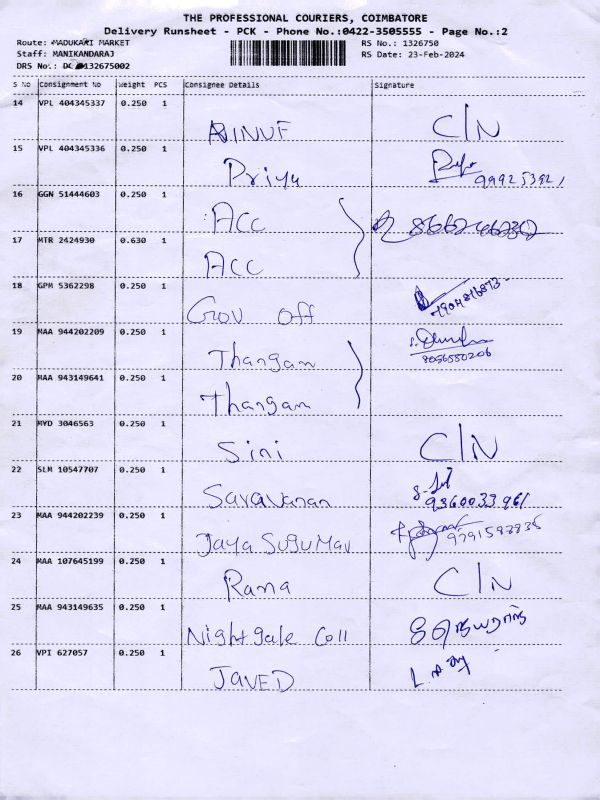 THE PROFESSIONAL COURIERS, COIMBATORE
Delivery Runsheet - PCK - Phone No.:0422-3505555 - Page No.:2
Route: MADUKARI MARKET RS No.: 1326750
Staff: MANIKANDARAJ RS Date: 23-Feb-2024
DRS No.: DC 132675002
S No Consignment No Weight PCS Consignee Details Signature
14 VPL 404345337 0.250 1
C/N
15 VPL 404345336 0.250 1
Priya
16 GGN 51444603 0.250 1
ACC
17 MTR 2424930 0.630 1
ACC
18 GPM 5362298 0.250 1
Gov off
19 MAA 944202209 0.250 1
Thangam
8056550206
20 MAA 943149641 0.250 1
Thangam
21 MYD 3046563 0.250 1
Sini C/N
22 SLM 10547707 0.250 1
Saravanan 9360033961
23 MAA 944202239 0.250 1
Jaya Sugumar
24 MAA 107645199 0.250 1
Rana C/N
25 MAA 943149635 0.250 1
Nightgale Coll
26 VPI 627057 0.250 1
JAVED